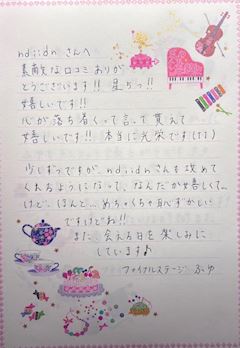 ndiidn さんへ
素敵な口コミありが
とうございます!! 星5つ!!
嬉しいです!!
心が落ち着くって言って貰えて
嬉しいです!! 本当に光栄です(泣)
少しずつですが、ndiidnさんを攻めて
くれるようになって、なんだか嬉しくて…
けど、ほんと…めちゃくちゃ恥ずかしい
ですけどね!!
また、会える日を楽しみに
しています♪
ファイナルステージ ふゆ